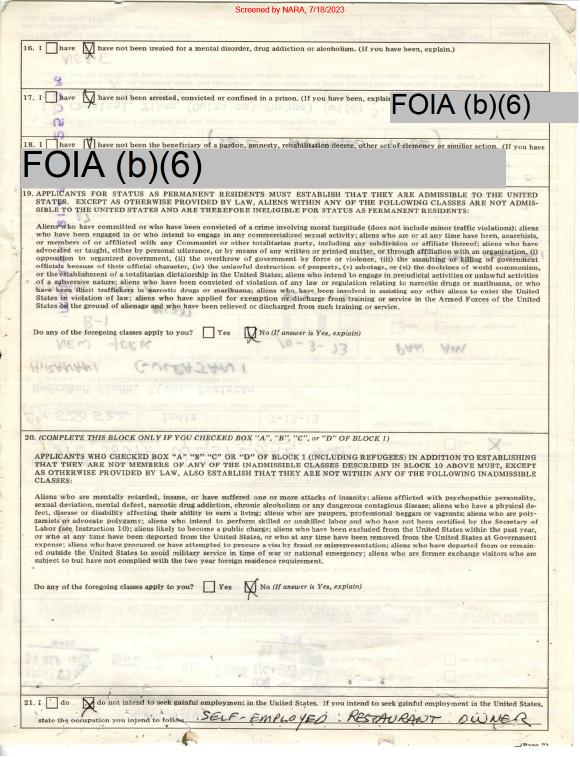 Screened by NARA, 7/18/2023
16. I have have not been treated for a mental disorder, drug addiction or alcoholism. (If you have been, explain.)
17. I have have not been arrested, convicted or confined in a prison. (If you have been, explai
FOIA (b)(6)
18. I have have not been the beneficiary of a pardon, amnesty, rehabilitation decree, other act of clemency or similar action. (If you have
FOIA (b)(6)
19. APPLICANTS FOR STATUS AS PERMANENT RESIDENTS MUST ESTABLISH THAT THEY ARE ADMISSIBLE TO THE UNITED
STATES. EXCEPT AS OTHERWISE PROVIDED BY LAW, ALIENS WITHIN ANY OF THE FOLLOWING CLASSES ARE NOT ADMIS-
SIBLE TO THE UNITED STATES AND ARE THEREFORE INELIGIBLE FOR STATUS AS PERMANENT RESIDENTS:
Aliens who have committed or who have been convicted of a crime involving moral turpitude (does not include minor traffic violations); aliens
who have been engaged in or who intend to engage in any commercialized sexual activity; aliens who are or at any time have been, anarchists,
or members of or affiliated with any Communist or other totalitarian party, including any subdivision or affiliate thereof; aliens who have
advocated or taught, either by personal utterance, or by means of any written or printed matter, or through affiliation with an organization, (i)
opposition to organized government, (ii) the overthrow of government by force or violence, (iii) the assaulting or killing of government
officials because of their official character, (iv) the unlawful destruction of property, (v) sabotage, or (vi) the doctrines of world communism,
or the establishment of a totalitarian dictatorship in the United States; aliens who intend to engage in prejudicial activities or unlawful activities
of a subversive nature; aliens who have been convicted of violation of any law or regulation relating to narcotic drugs or marihuana, or who
have been illicit traffickers in narcotic drugs or marihuana; aliens who have been involved in assisting any other aliens to enter the United
States in violation of law; aliens who have applied for exemption or discharge from training or service in the Armed Forces of the United
States on the ground of alienage and who have been relieved or discharged from such training or service.
Do any of the foregoing classes apply to you? Yes No (If answer is Yes, explain)
20. (COMPLETE THIS BLOCK ONLY IF YOU CHECKED BOX "A", "B", "C", or "D" OF BLOCK 1)
APPLICANTS WHO CHECKED BOX "A" "B" "C" OR "D" OF BLOCK 1 (INCLUDING REFUGEES) IN ADDITION TO ESTABLISHING
THAT THEY ARE NOT MEMBERS OF ANY OF THE INADMISSIBLE CLASSES DESCRIBED IN BLOCK 19 ABOVE MUST, EXCEPT
AS OTHERWISE PROVIDED BY LAW, ALSO ESTABLISH THAT THEY ARE NOT WITHIN ANY OF THE FOLLOWING INADMISSIBLE
CLASSES:
Aliens who are mentally retarded, insane, or have suffered one or more attacks of insanity; aliens afflicted with psychopathic personality,
sexual deviation, mental defect, narcotic drug addiction, chronic alcoholism or any dangerous contagious disease; aliens who have a physical de-
fect, disease or disability affecting their ability to earn a living; aliens who are paupers, professional beggars or vagrants; aliens who are poly-
gamists or advocate polygamy; aliens who intend to perform skilled or unskilled labor and who have not been certified by the Secretary of
Labor (see Instruction 10); aliens likely to become a public charge; aliens who have been excluded from the United States within the past year,
or who at any time have been deported from the United States, or who at any time have been removed from the United States at Government
expense; aliens who have procured or have attempted to procure a visa by fraud or misrepresentation; aliens who have departed from or remain-
ed outside the United States to avoid military service in time of war or national emergency; aliens who are former exchange visitors who are
subject to but have not complied with the two year foreign residence requirement.
Do any of the foregoing classes apply to you? Yes No (If answer is Yes, explain)
21. I do do not intend to seek gainful employment in the United States. If you intend to seek gainful employment in the United States,
state the occupation you intend to follow. SELF-EMPLOYED : RESTAURANT OWNER
(Page 2)